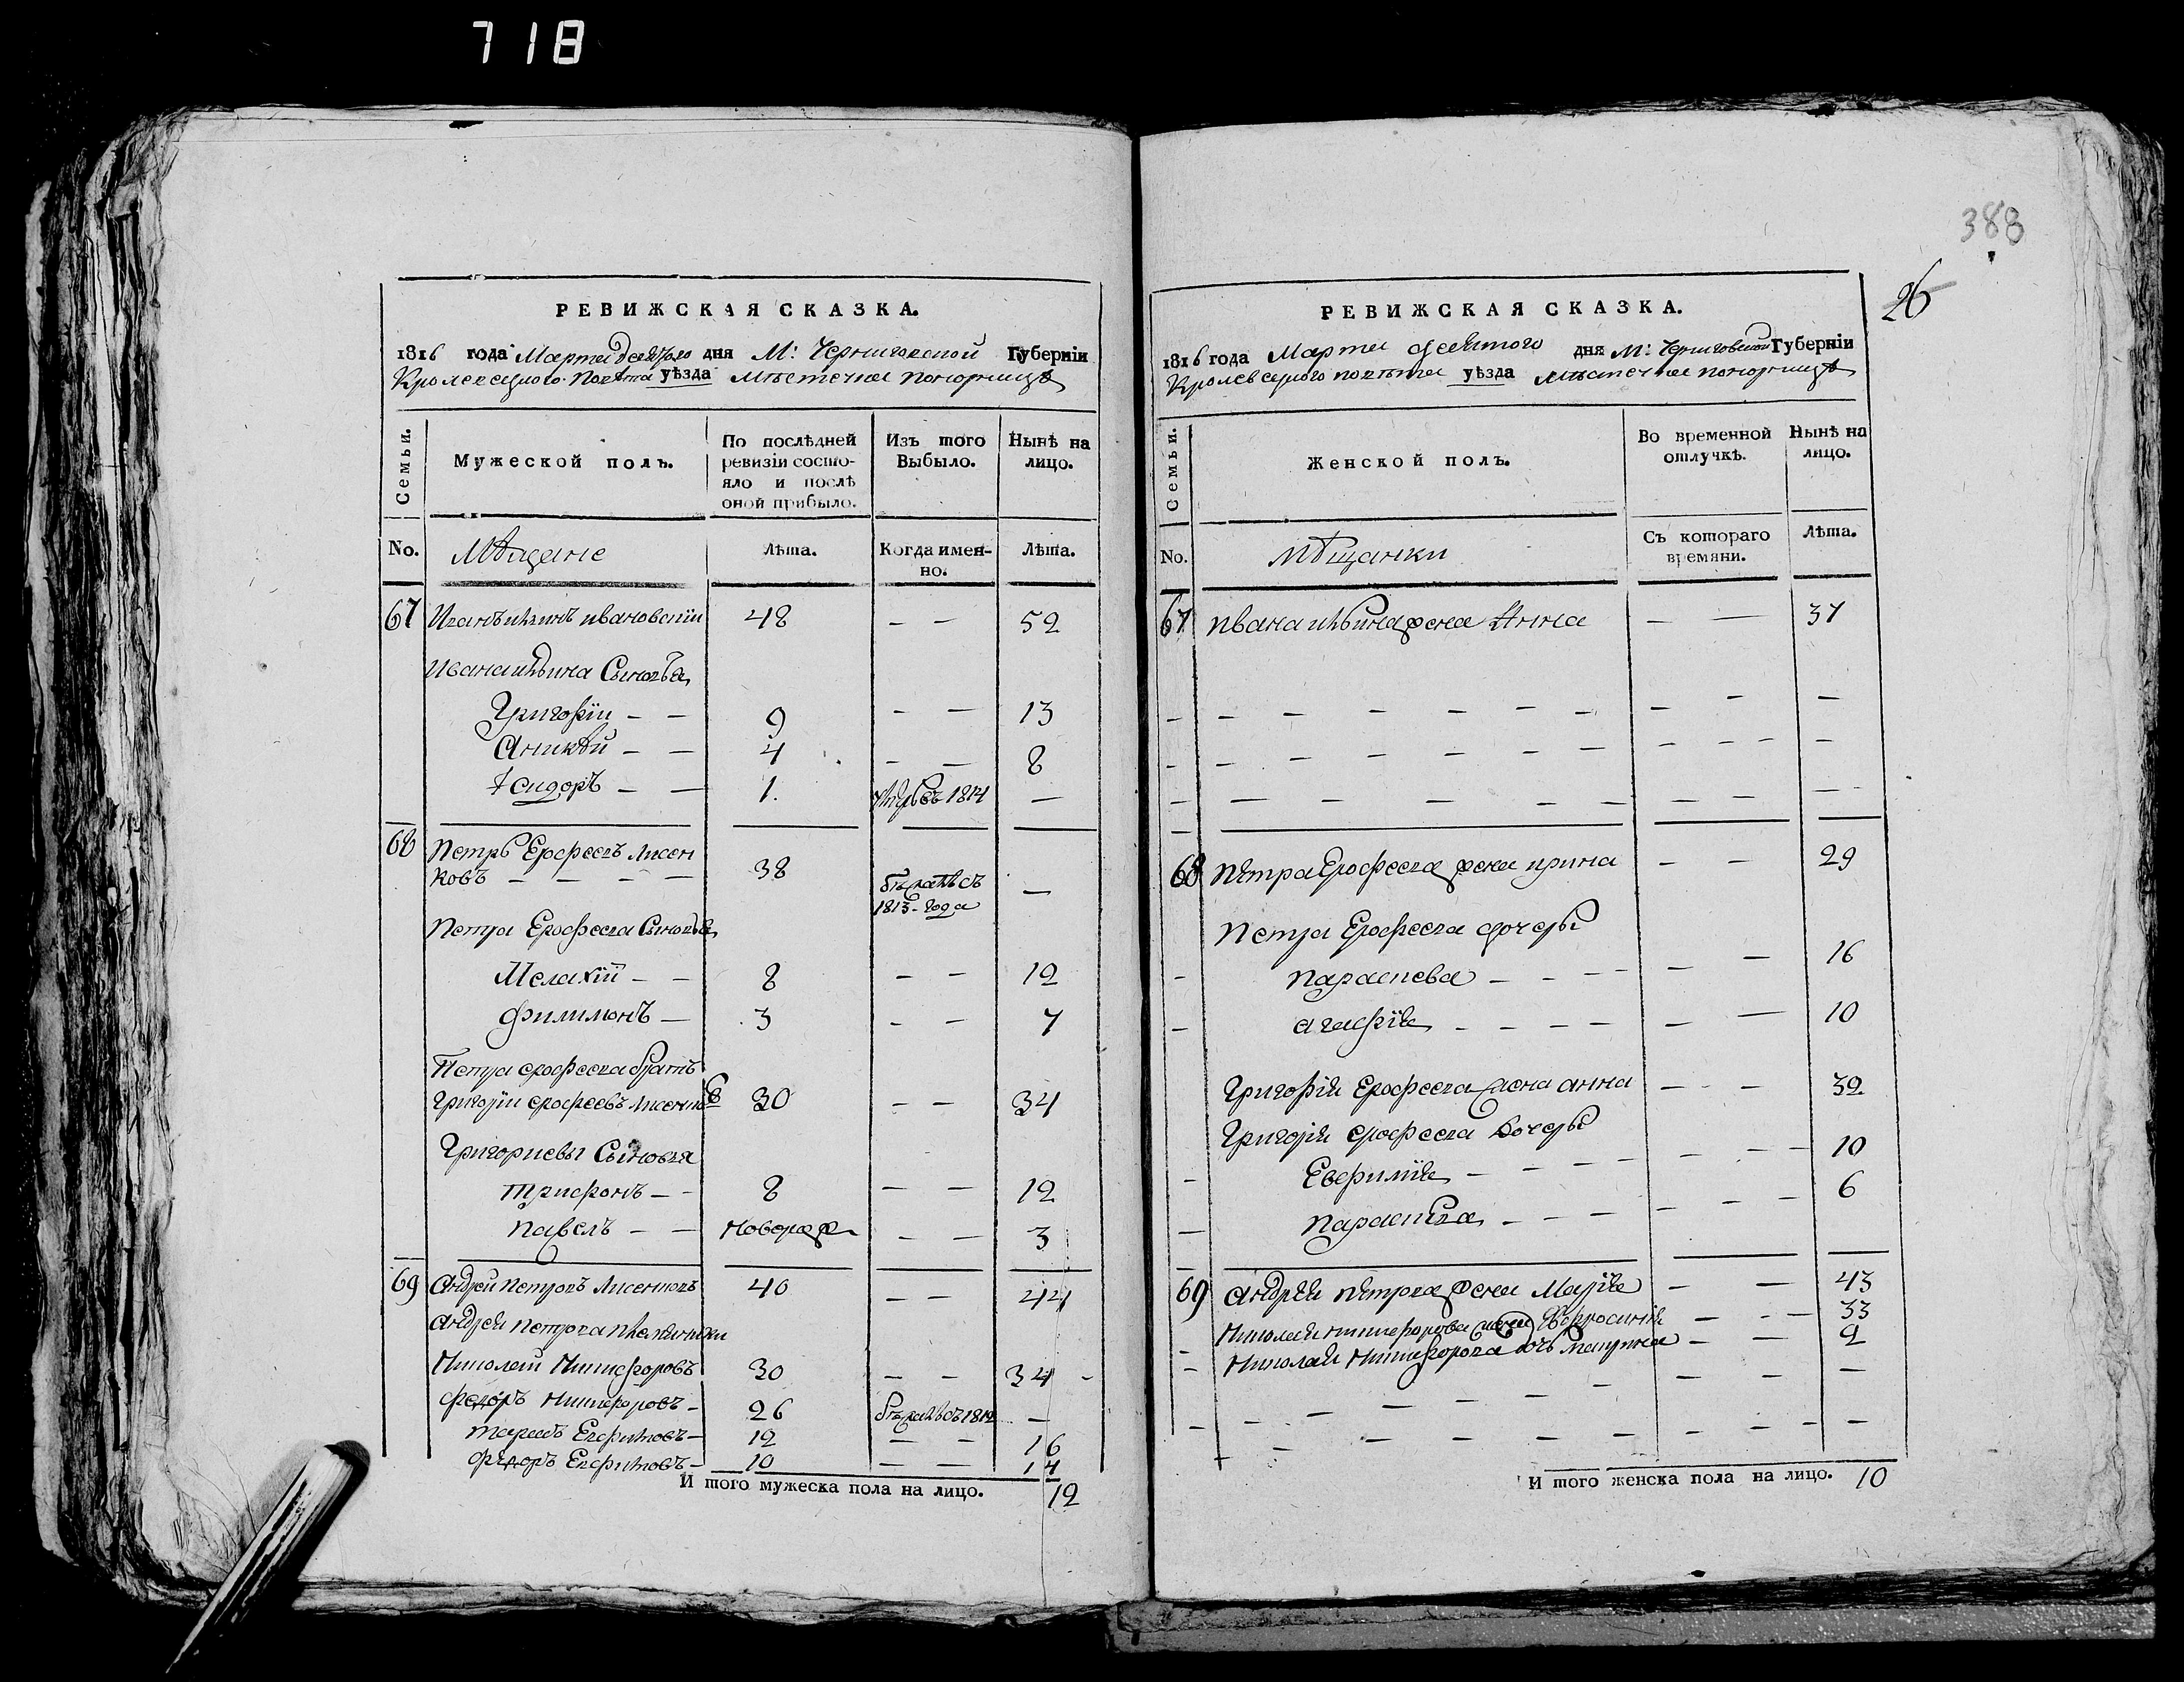 718
РЕВИЖСКАЯ СКАЗКА.
1816 года Марта десятого дня М: Черниговской Губерніи
Кролевецкого Повѣта уѣзда Мѣстечка Понорницѣ
Семьи.
Мужеской полъ.
По послѣдней ревизіи состо-
яло и послѣ
оной прибыло.
Изъ того
Выбыло.
Нынѣ на
лицо.
No. Мѣщане Лѣта. Когда имен-
но. Лѣта.
67 Иванъ ивановскій 48 — — 52
Ивана Сыновья
Григорій — — 9 — — 13
Аникѣй — — 4 — — 8
Сидоръ — — 1. 1814 —
68 Петръ Ерофеевъ Лисен
ковъ — — — — 38 —
1813 года
Петра Ерофеева Сыновья
Мелахій — — 8 — — 12
Филимонъ — 3 — — 7
Петра ерофеева братъ
Григорій ерофеевъ 30 — — 34
Григориевы Сыновья
Трифонъ — - 8 — — 12
павелъ — — новорож — — 3
69 Андрей Петровъ Лисенковъ 40 — — 44
Андрея петрова племянники
Николай Никифоровъ 30 — — 34
Федоръ Никифоровъ - 26 —
Тарасъ Евфимовъ — 12 — — 16
Федоръ Евфимовъ — 10 — — 14
И того мужеска пола на лицо. 12
388
26
РЕВИЖСКАЯ СКАЗКА.
1816 года Марта десятого дня М: Черниговской Губерніи
Кролевецкого повѣта уѣзда Мѣстечка Понорницѣ
Семьи.
Женской полъ.
Во временной
отлучкѣ.
Нынѣ на
лицо.
No. Мѣщанки Съ котораго
времяни. Лѣта.
67 Ивана жена Анна — — 37
68 Петра Ерофеева жена ирина — — 29
Петра Ерофеева дочеры
параскева — — 16
агафія — — 10
Григорія Ерофеева жена анна — — 32
Григорія ерофеева дочеры
Евфимія — — 10
параскева — — 6
69 Андрея петрова жена Марія — — 43
Николая никифорова жена Ефросинія — — 33
Николая Никифорова дочь — — 2
И того женска пола на лицо. 10